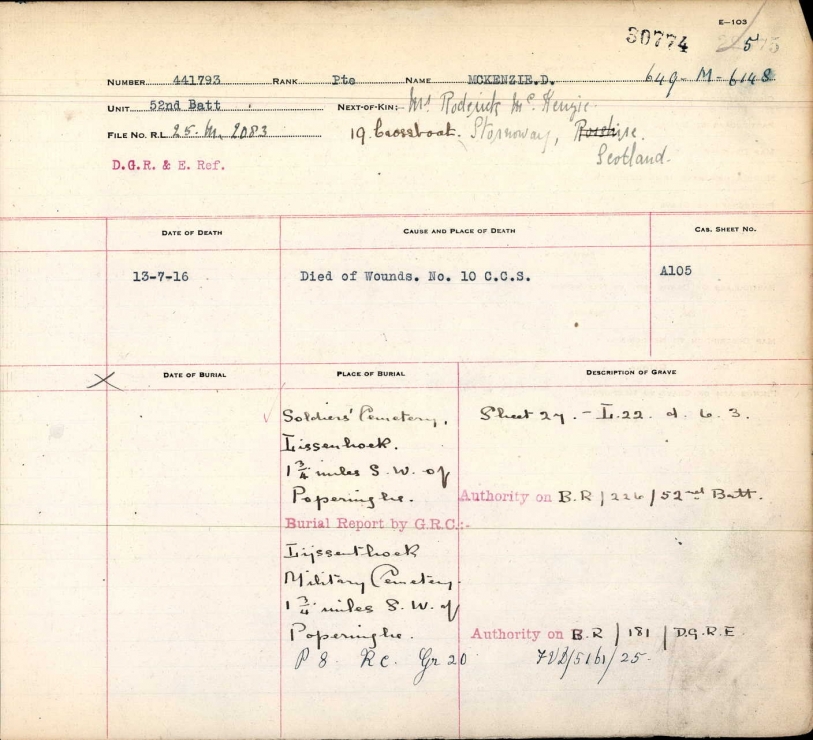 E—103
30774 5
NUMBER 441793 RANK Pte NAME MCKENZIE.D. 649-M-6148
UNIT 52nd Batt NEXT-OF-KIN:- Mrs Roderick McKenzie
FILE NO. R.L. 25. M. 2083 19. Crossboat. Stornoway,
Scotland.
D.G.R. & E. Ref.
DATE OF DEATH CAUSE AND PLACE OF DEATH CAS. SHEET NO.
13-7-16 Died of Wounds. No. 10 C.C.S. A105
DATE OF BURIAL PLACE OF BURIAL DESCRIPTION OF GRAVE
Soldiers' Cemetery, Sheet 27. - L.22. d. 6. 3.
Lissenhoek.
1 3/4 miles S.W. of
Poperinghe. Authority on B.R / 226 / 52nd Batt.
Burial Report by G.R.C.:-
Lijssenthoek
Military Cemetery.
1 3/4 miles S.W. of
Poperinghe. Authority on B.R / 181 / D.G.R.E.
P 8. R C. Gr 20 /5161/25.